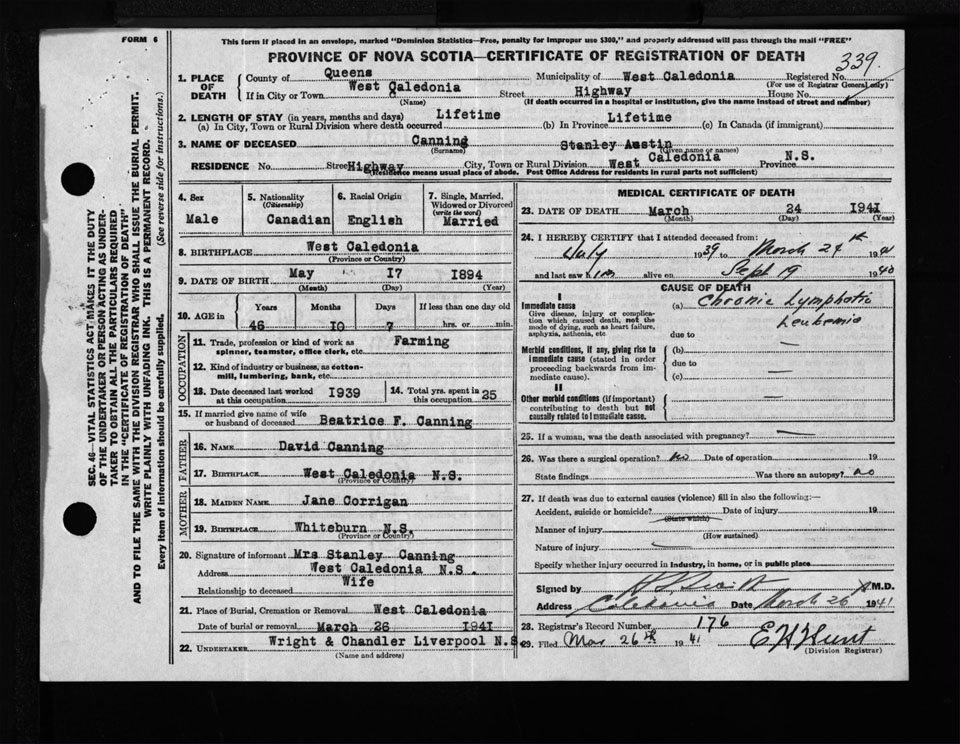 FORM 6
This form if placed in an envelope, marked "Dominion Statistics—Free, penalty for improper use $300," and properly addressed will pass through the mail "FREE"
PROVINCE OF NOVA SCOTIA—CERTIFICATE OF REGISTRATION OF DEATH
339
1. PLACE OF DEATH County of Queens Municipality of West Caledonia Registered No.
(For use of Registrar General only)
If in City or Town West Caledonia Street Highway House No.
(Name) (If death occurred in a hospital or institution, give the name instead of street and number)
2. LENGTH OF STAY (in years, months and days)
(a) In City, Town or Rural Division where death occurred Lifetime (b) In Province Lifetime (c) In Canada (if immigrant)
3. NAME OF DECEASED Canning Stanley Austin
(Surname) (Given name or names)
RESIDENCE No. Street Highway City, Town or Rural Division West Caledonia Province N.S.
(Residence means usual place of abode. Post Office Address for residents in rural parts not sufficient)
4. Sex Male
5. Nationality (Citizenship) Canadian
6. Racial Origin English
7. Single, Married, Widowed or Divorced (write the word) Married
8. BIRTHPLACE West Caledonia
(Province or Country)
9. DATE OF BIRTH May 17 1894
(Month) (Day) (Year)
10. AGE in Years Months Days If less than one day old
46 10 7 hrs. or min.
OCCUPATION
11. Trade, profession or kind of work as spinner, teamster, office clerk, etc. Farming
12. Kind of industry or business, as cotton-mill, lumbering, bank, etc.
13. Date deceased last worked at this occupation 1939
14. Total yrs. spent in this occupation 25
15. If married give name of wife or husband of deceased Beatrice F. Canning
FATHER
16. NAME David Canning
17. BIRTHPLACE West Caledonia N.S.
(Province or Country)
MOTHER
18. MAIDEN NAME Jane Corrigan
19. BIRTHPLACE Whiteburn N.S.
(Province or Country)
20. Signature of informant Mrs Stanley Canning
Address West Caledonia N.S.
Relationship to deceased Wife
21. Place of Burial, Cremation or Removal West Caledonia
Date of burial or removal March 26 1941
22. UNDERTAKER Wright & Chandler Liverpool N.S
(Name and address)
MEDICAL CERTIFICATE OF DEATH
23. DATE OF DEATH March 24 1941
(Month) (Day) (Year)
24. I HEREBY CERTIFY that I attended deceased from:
July 1939 to March 24th 1941
and last saw him alive on Sept 19 1940
CAUSE OF DEATH
I
Immediate cause
Give disease, injury or complication which caused death, not the mode of dying, such as heart failure, asphyxia, asthenia, etc.
(a) Chronic Lymphatic
Leukemia
due to
Morbid conditions, if any, giving rise to immediate cause (stated in order proceeding backwards from immediate cause).
(b) —
due to
(c) —
II
Other morbid conditions (if important) contributing to death but not causally related to immediate cause.
—
25. If a woman, was the death associated with pregnancy? —
26. Was there a surgical operation? no Date of operation 19
State findings Was there an autopsy? no
27. If death was due to external causes (violence) fill in also the following:—
Accident, suicide or homicide? Date of injury 19
(State which)
Manner of injury
(How sustained)
Nature of injury
Specify whether injury occurred in industry, in home, or in public place
Signed by M.D.
Address Caledonia Date March 26 1941
28. Registrar's Record Number 176
29. Filed Mar 26th 1941 E H Hunt
(Division Registrar)
SEC. 46—VITAL STATISTICS ACT MAKES IT THE DUTY
OF THE UNDERTAKER OR PERSON ACTING AS UNDER-
TAKER TO OBTAIN ALL THE PARTICULARS REQUIRED
IN THE "CERTIFICATE OF REGISTRATION OF DEATH"
AND TO FILE THE SAME WITH THE DIVISION REGISTRAR WHO SHALL ISSUE THE BURIAL PERMIT.
WRITE PLAINLY WITH UNFADING INK. THIS IS A PERMANENT RECORD.
Every item of information should be carefully supplied. (See reverse side for instructions.)